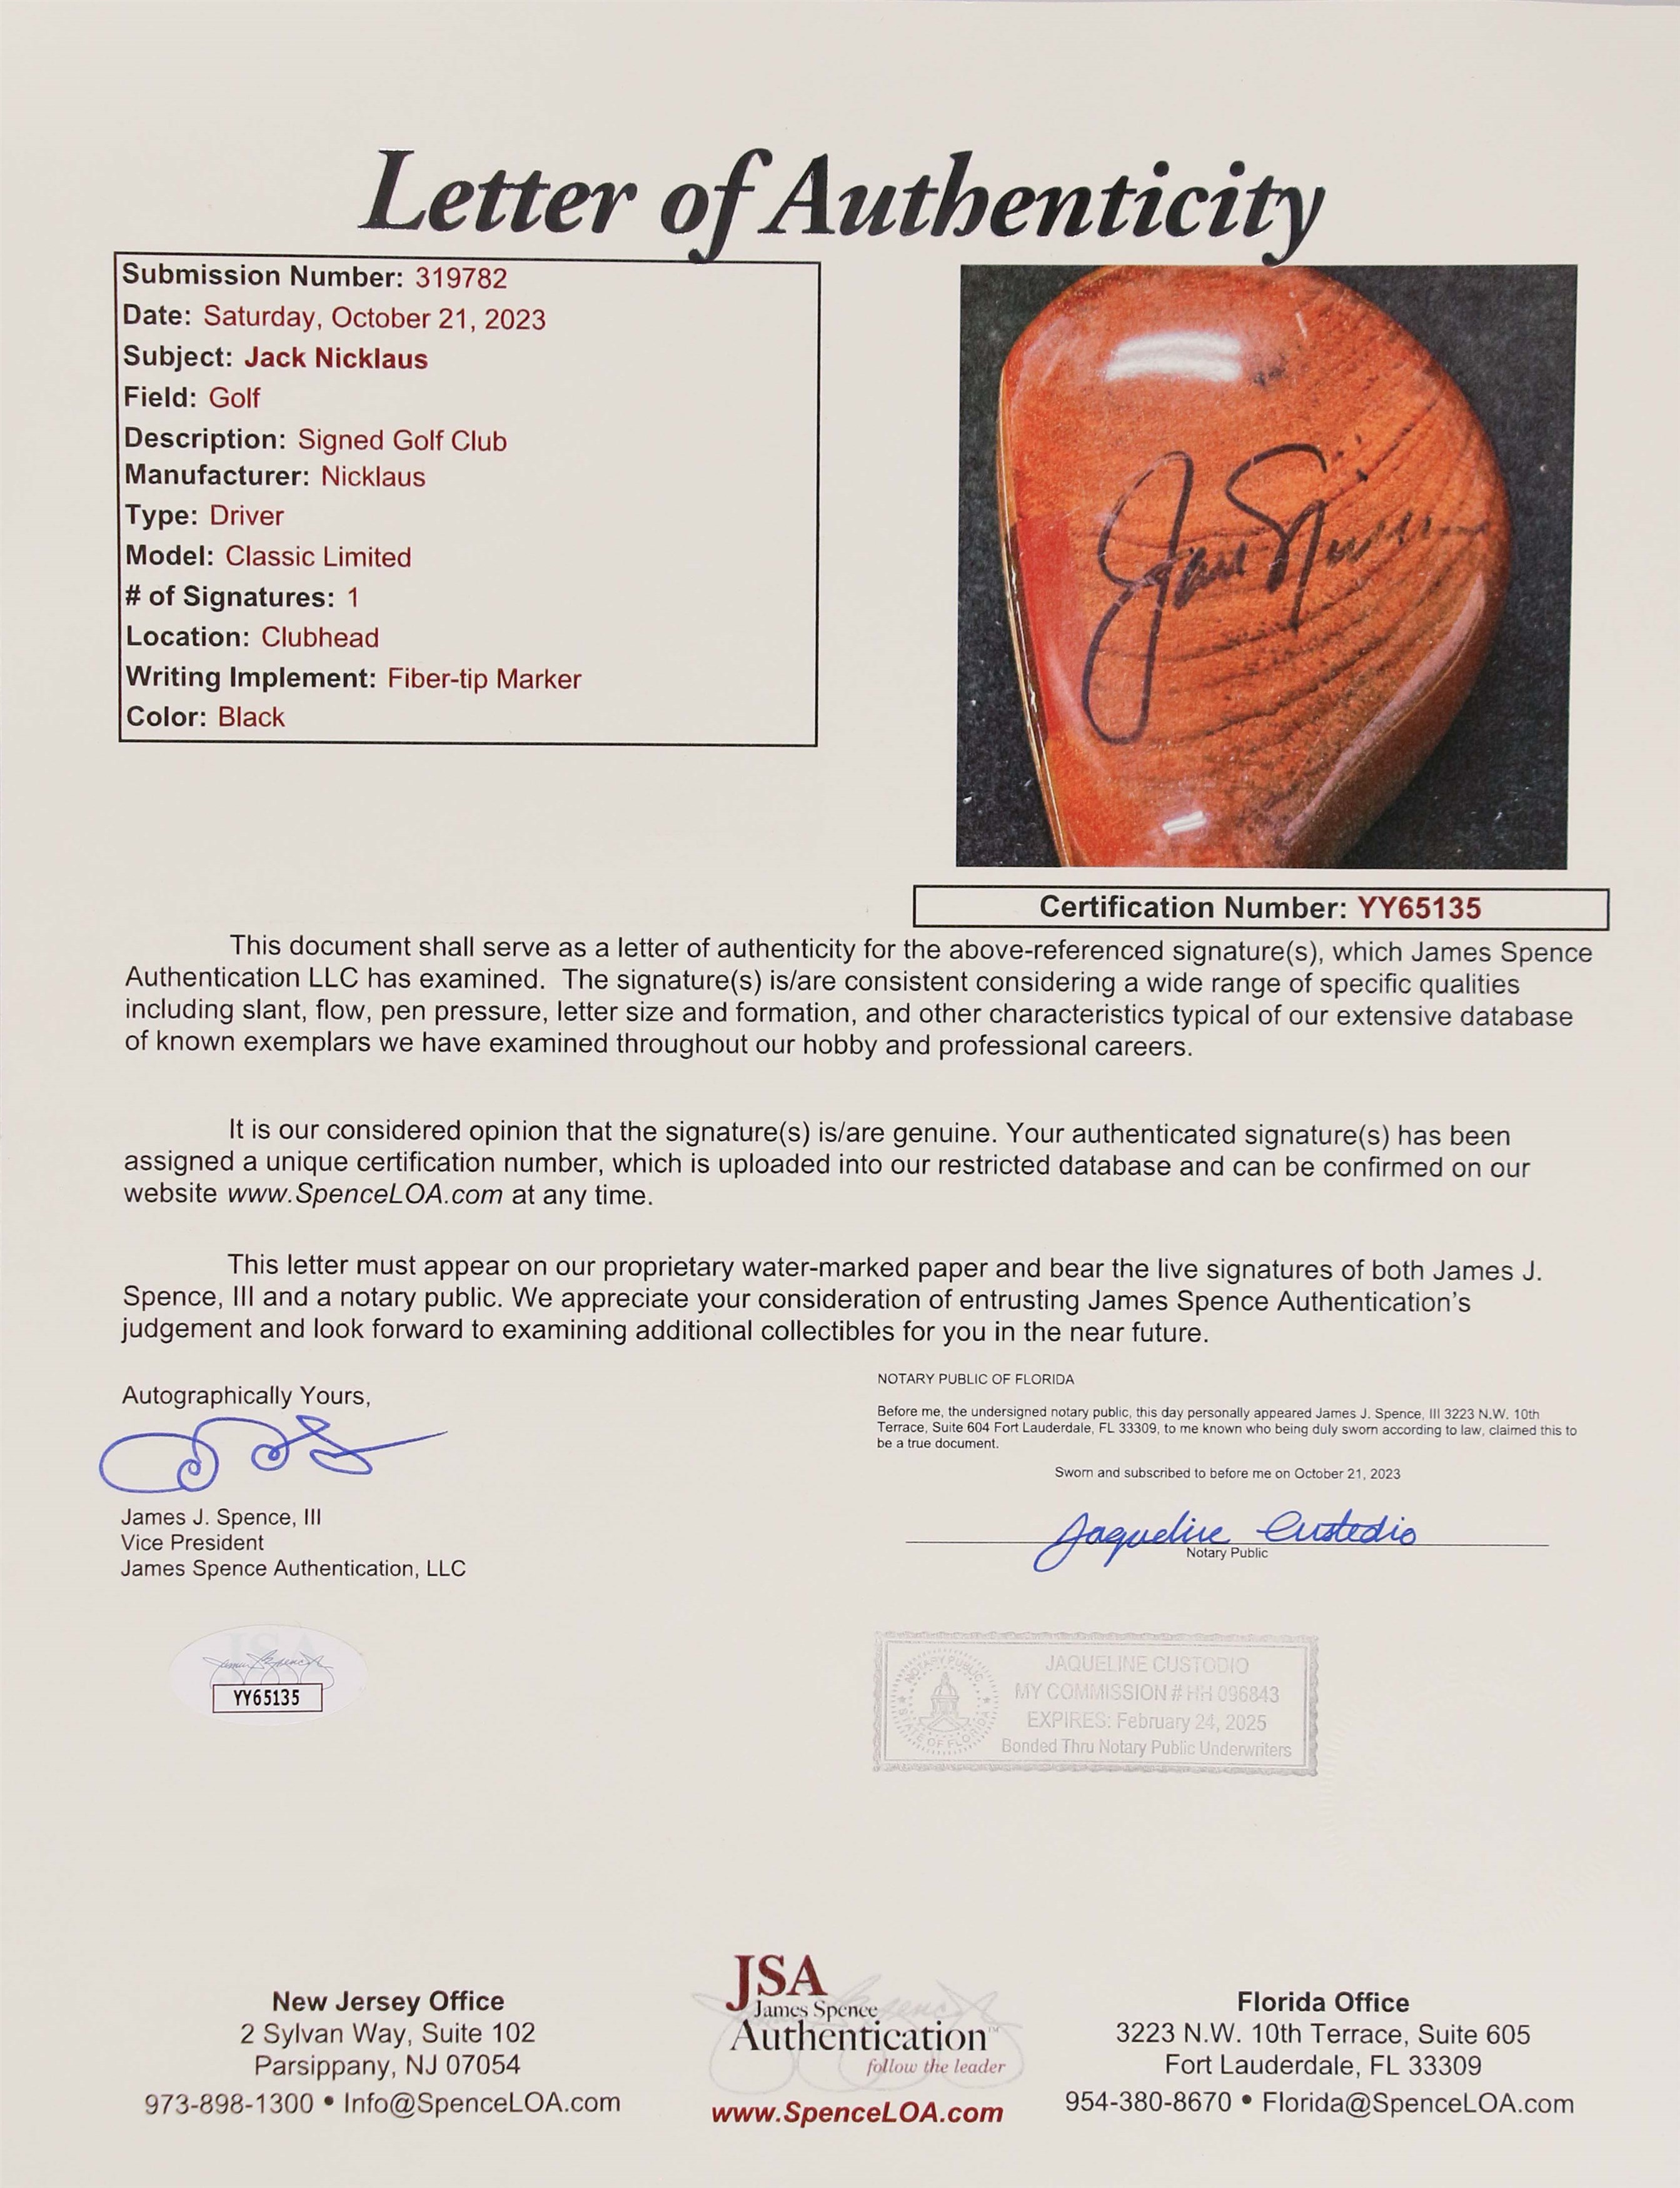 Letter of Authenticity
Submission Number: 319782
Date: Saturday, October 21, 2023
Subject: Jack Nicklaus
Field: Golf
Description: Signed Golf Club
Manufacturer: Nicklaus
Type: Driver
Model: Classic Limited
# of Signatures: 1
Location: Clubhead
Writing Implement: Fiber-tip Marker
Color: Black
Certification Number: YY65135
This document shall serve as a letter of authenticity for the above-referenced signature(s), which James Spence
Authentication LLC has examined. The signature(s) is/are consistent considering a wide range of specific qualities
including slant, flow, pen pressure, letter size and formation, and other characteristics typical of our extensive database
of known exemplars we have examined throughout our hobby and professional careers.
It is our considered opinion that the signature(s) is/are genuine. Your authenticated signature(s) has been
assigned a unique certification number, which is uploaded into our restricted database and can be confirmed on our
website www.SpenceLOA.com at any time.
This letter must appear on our proprietary water-marked paper and bear the live signatures of both James J.
Spence, III and a notary public. We appreciate your consideration of entrusting James Spence Authentication's
judgement and look forward to examining additional collectibles for you in the near future.
Autographically Yours,
James J. Spence, III
Vice President
James Spence Authentication, LLC
NOTARY PUBLIC OF FLORIDA
Before me, the undersigned notary public, this day personally appeared James J. Spence, III 3223 N.W. 10th
Terrace, Suite 604 Fort Lauderdale, FL 33309, to me known who being duly sworn according to law, claimed this to
be a true document.
Sworn and subscribed to before me on October 21, 2023
Jaqueline Custodio
Notary Public
JSA
YY65135
NOTARY PUBLIC
STATE OF FLORIDA
JAQUELINE CUSTODIO
MY COMMISSION # HH 096843
EXPIRES: February 24, 2025
Bonded Thru Notary Public Underwriters
New Jersey Office
2 Sylvan Way, Suite 102
Parsippany, NJ 07054
973-898-1300 • Info@SpenceLOA.com
JSA
James Spence
Authentication™
follow the leader
www.SpenceLOA.com
Florida Office
3223 N.W. 10th Terrace, Suite 605
Fort Lauderdale, FL 33309
954-380-8670 • Florida@SpenceLOA.com